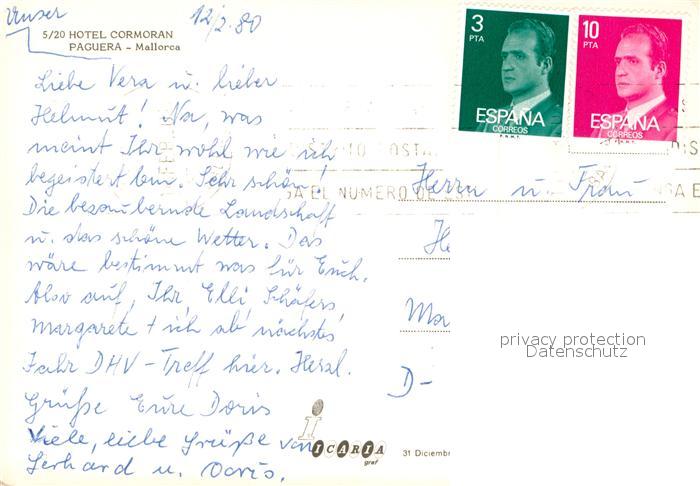 Unser 12/2.80
5/20 HOTEL CORMORAN
PAGUERA - Mallorca
Liebe Vera u. lieber
Helmut! Na, was
meint Ihr wohl wie ich
begeistert bin. Sehr schön!
Die bezaubernde Landschaft
u. das schöne Wetter. Das
wäre bestimmt was für Euch.
Also auf, Ihr, Elli Schäfers,
Margarete + ich ab nächstes
Jahr DHV-Treff hier. Herzl.
Grüße Eure Doris
Viele, liebe Grüße von
Gerhard u. Doris.
3 PTA
ESPAÑA
CORREOS
F.N.M.T.
10 PTA
ESPAÑA
CORREOS
F.N.M.T.
EL NUMERO DE
Herrn u. Frau
He
Ma
D-
privacy protection
Datenschutz
i
ICARIA
graf
31 Diciembr